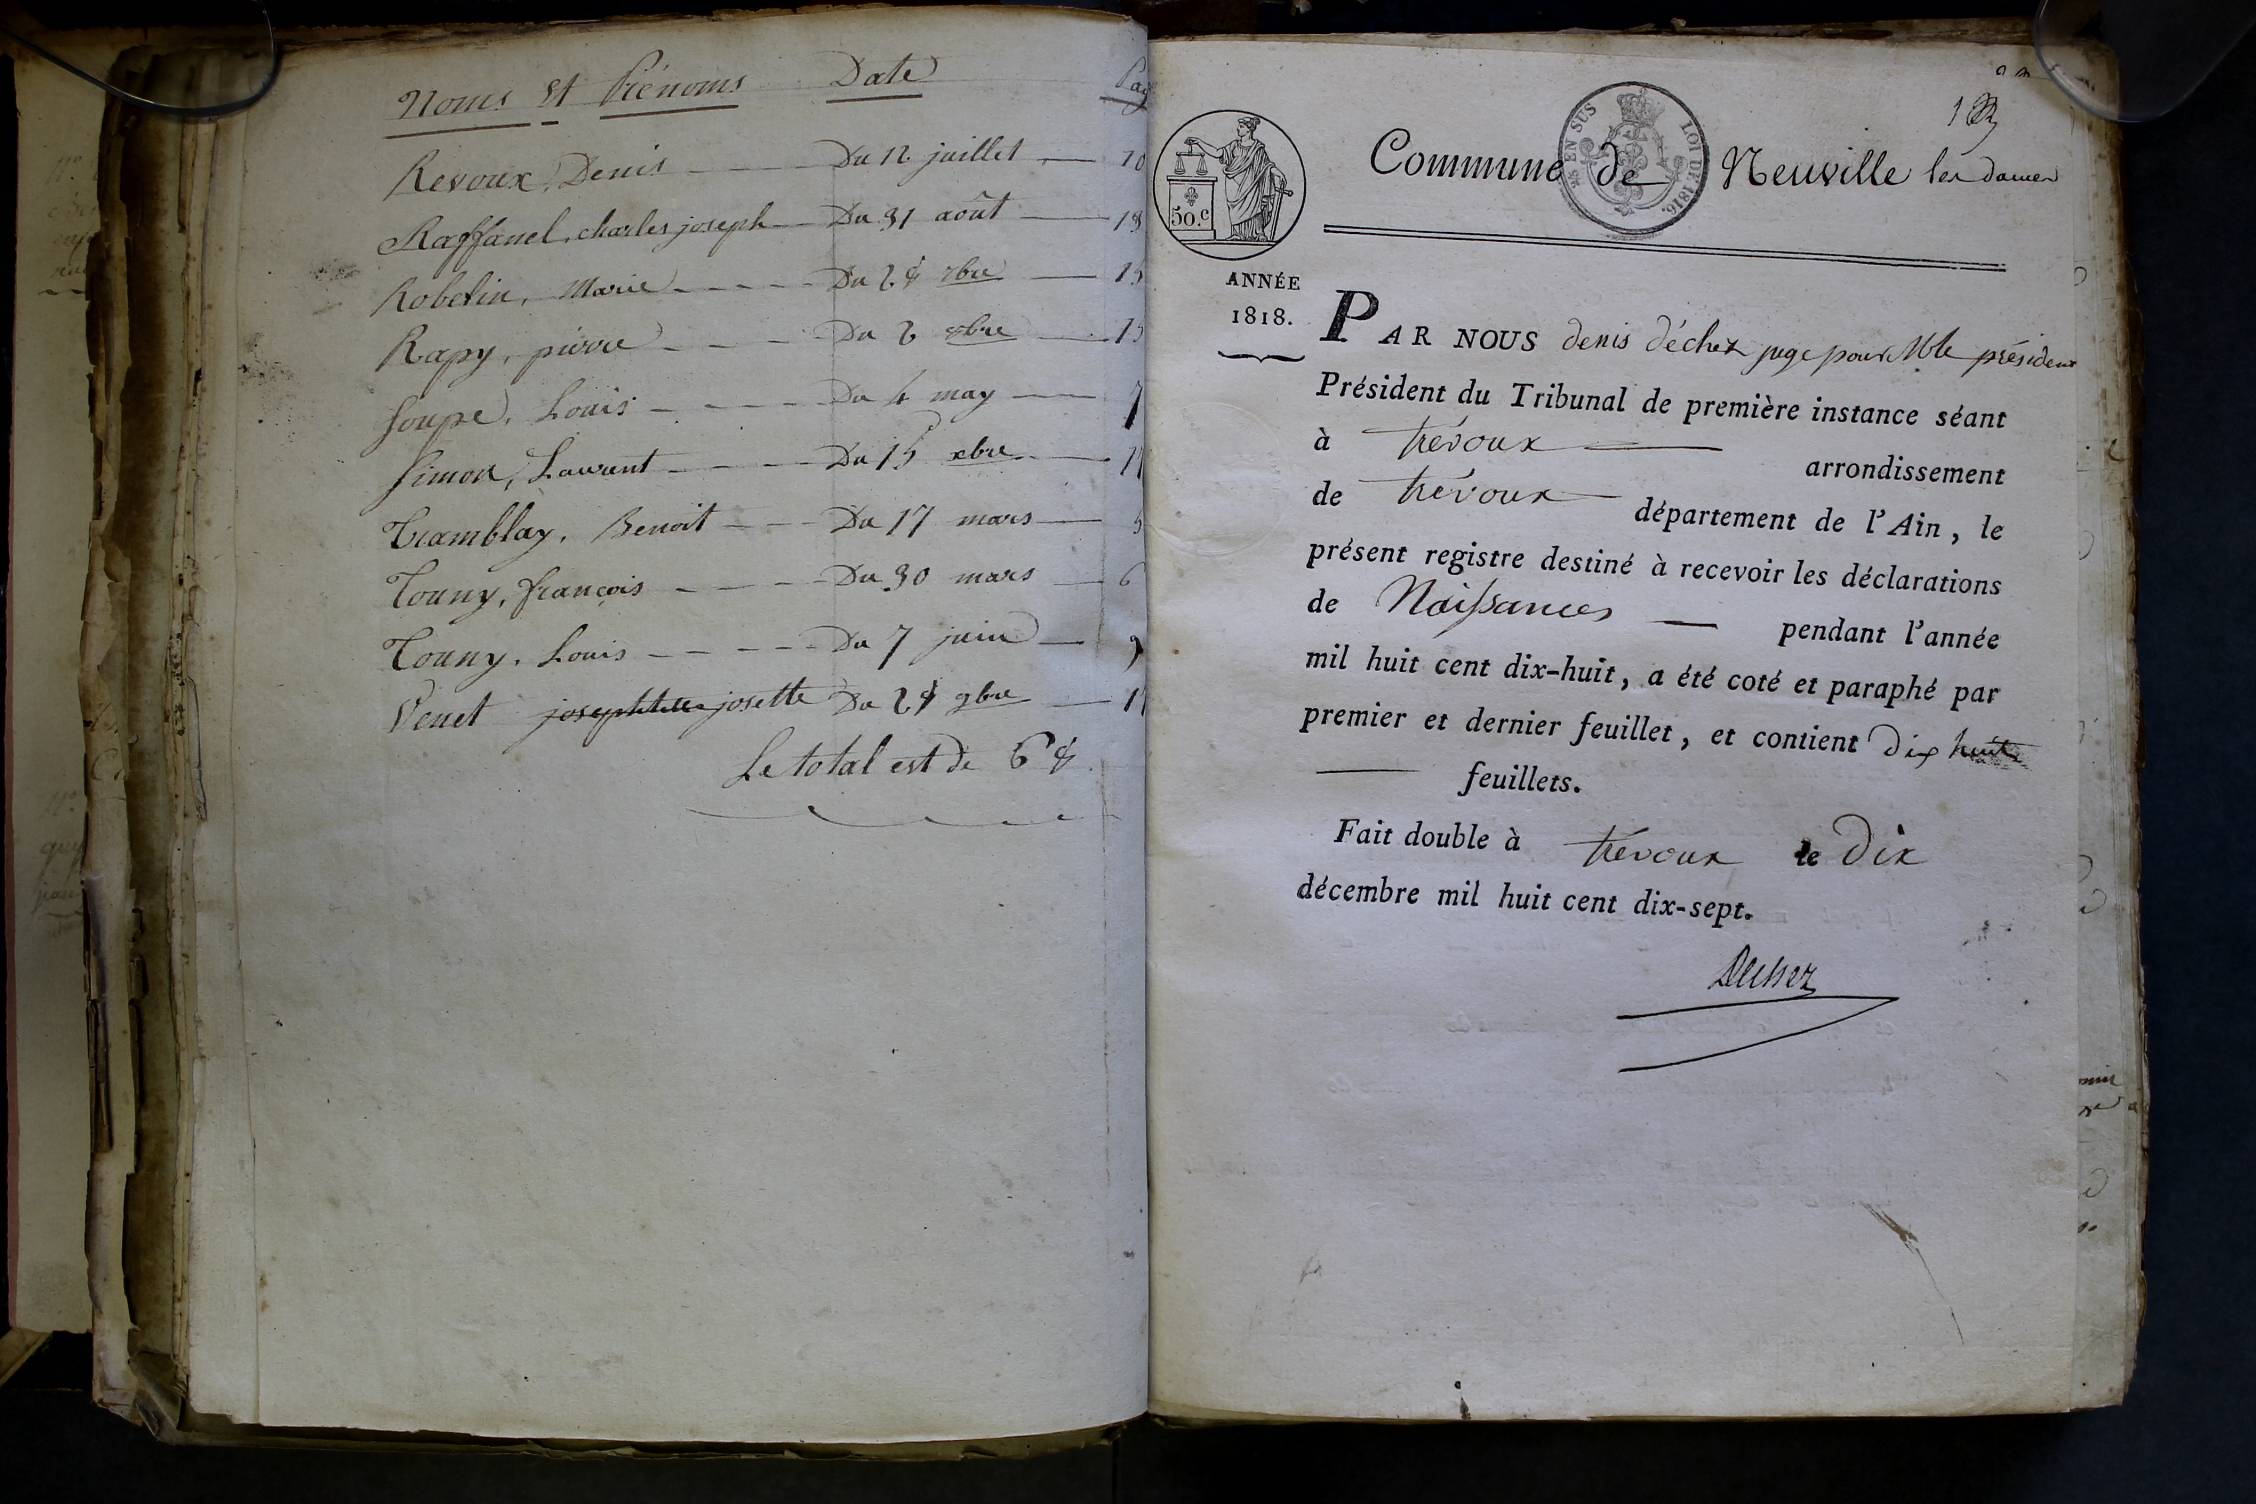 Noms et Prénoms Date Pag
Revoux, Denis Du 12 juillet 10
Raffanel, charles joseph Du 31 août 13
Robelin, Marie Du 28 7bre 15
Rapy, pierre Du 2 8bre 15
Soupe, Louis Du 4 may 7
Simon, Laurent Du 15 xbre 1
Tramblay, Benoit Du 17 mars 5
Touny, françois Du 30 mars 6
Touny, Louis Du 7 juin 9
Venet josette Du 28 9bre 1
Le total est de 68
1
50.c
EN SUS
LOI DE 1816.
Commune de Neuville les dames
ANNÉE
1818.
PAR NOUS denis déchez juge pour Mr le président
Président du Tribunal de première instance séant
à trévoux arrondissement
de trévoux département de l'Ain, le
présent registre destiné à recevoir les déclarations
de Naissances pendant l'année
mil huit cent dix-huit, a été coté et paraphé par
premier et dernier feuillet, et contient dix huit
feuillets.
Fait double à trévoux le dix
décembre mil huit cent dix-sept.
Dechez